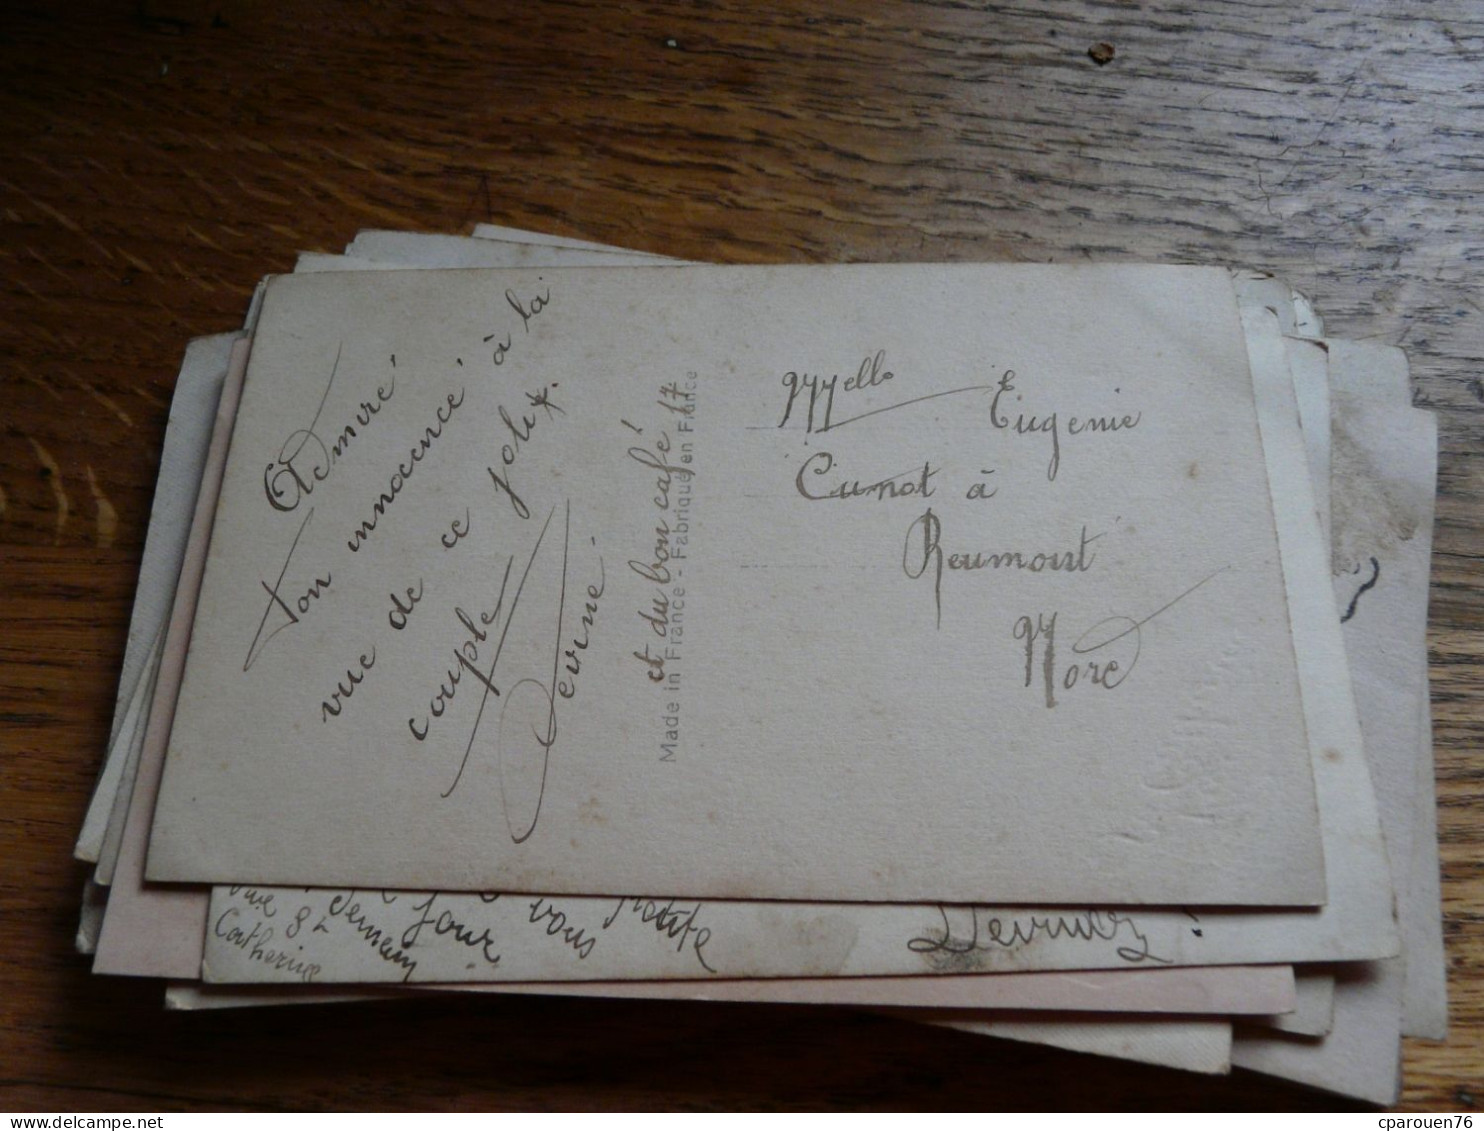 Admiré
ton innocencé à la
vue de ce joli
couple
Devine.
et du bon café! 17
Made in France - Fabriqué en France
Mелle Eugenie
Cunot à
Reumont
Nord
vive
St
Catherine
Demain
jour
vous
Devinez!
cparouen76